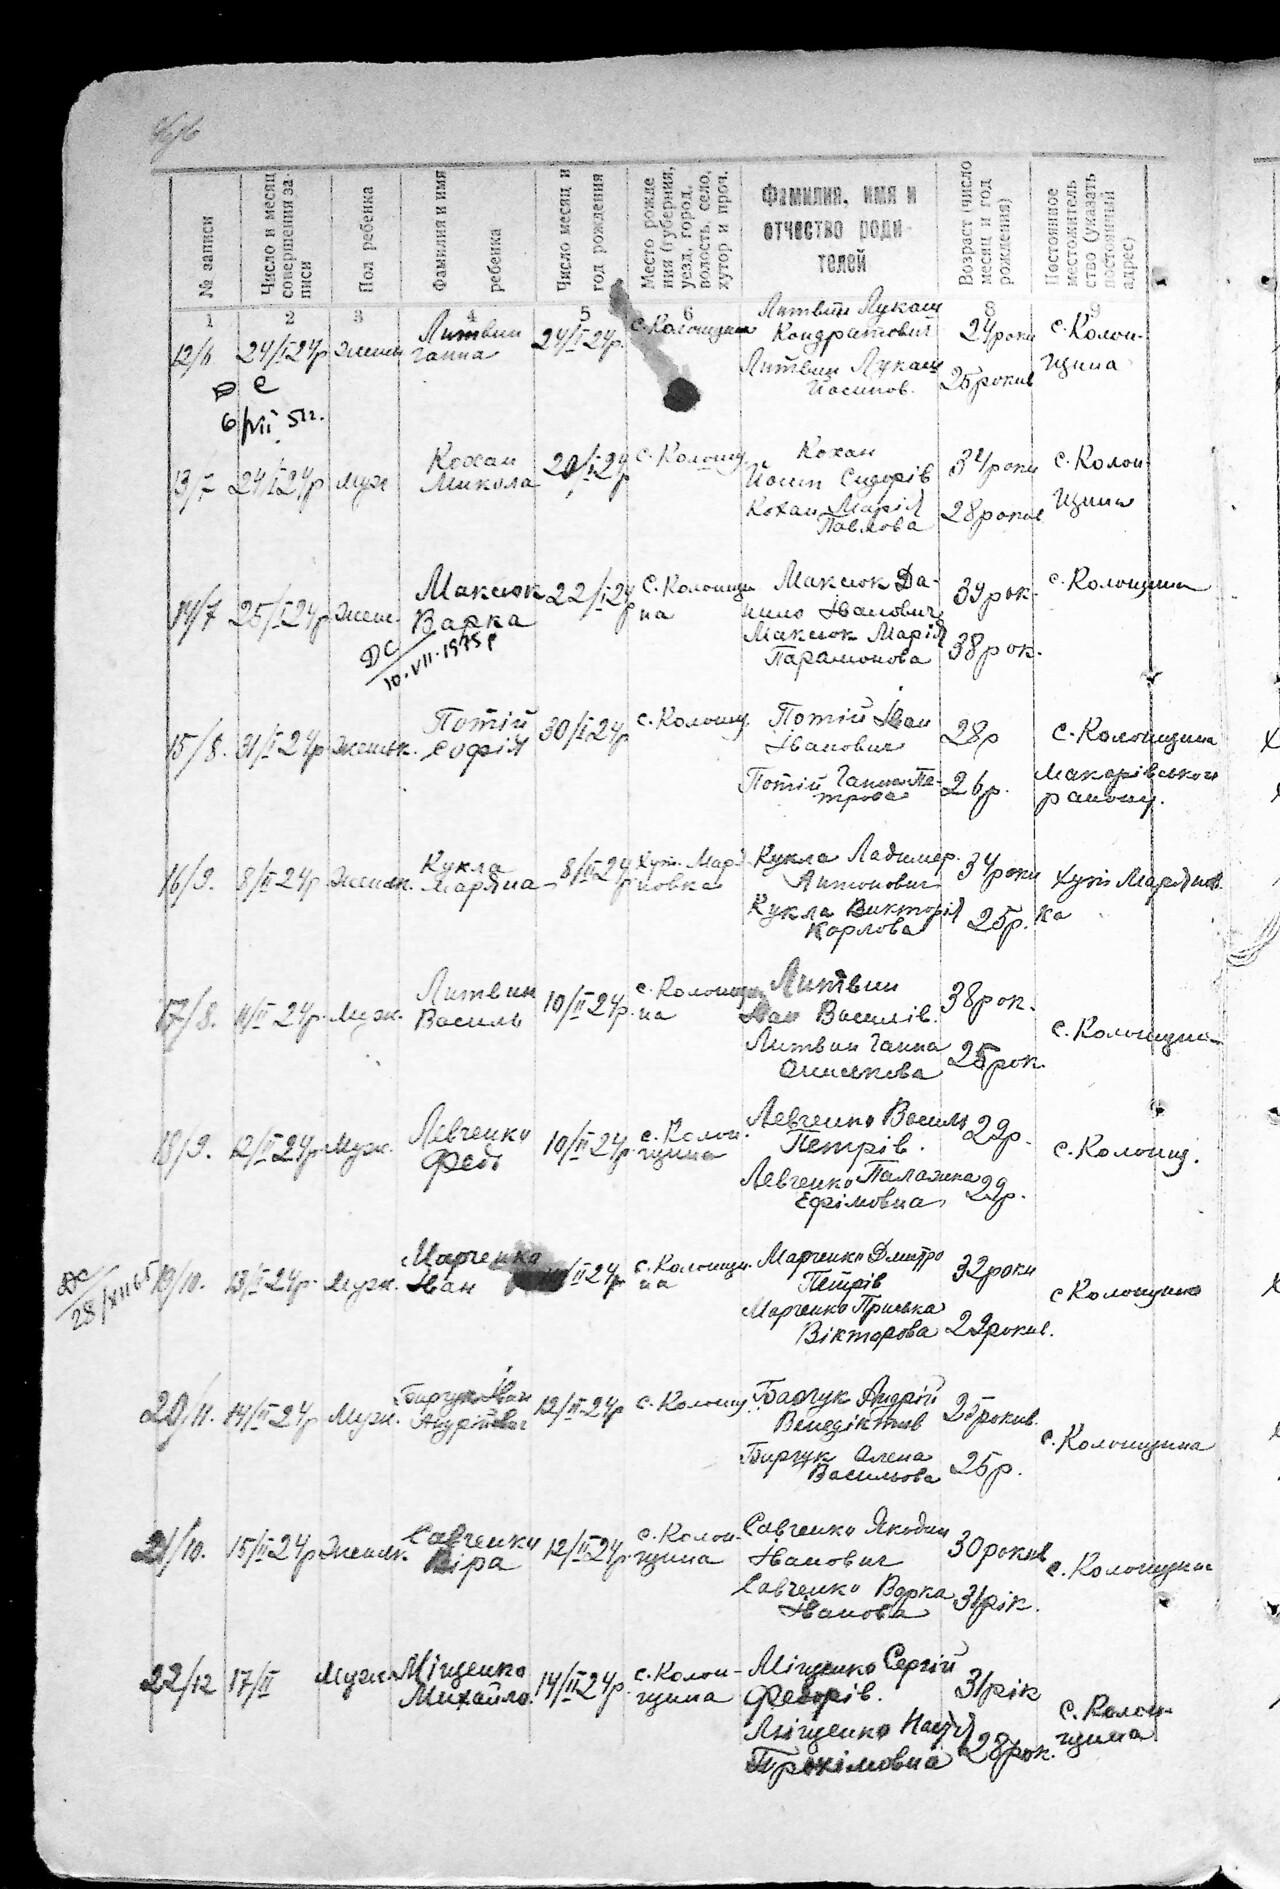 № записи
Число и месяц совершения записи
Пол ребенка
Фамилия и имя ребенка
Число месяц и год рождения
Место рождения (губерния, уезд, город, волость, село, хутор и проч.
Фамилия, имя и отчество родителей
Возраст (число месяц и год рождения)
Постоянное местожительство (указать постоянный адрес)
1 2 3 4 5 6 8 9
12/6 24/I 24р Женск Литвин Ганна 24/I 24р. с. Колонщина
Литвин Лукаш Кондратович 24 роки с. Колонщина
Литвин Лукаш Йосипов. 25 років
ДС
6/VII 51г.
13/7 24/I 24р муж Кохан Микола 20/I 24р с. Колонщ.
Кохан Йосип Сидорів 34 роки с. Колонщина
Кохан Марія Павлова 28 років
14/7 25/I 24р Женс. Максюк Варка 22/I 24р С. Колонщина
Максюк Данило Іванович 39 рок. с. Колонщина
Максюк Марія Парамонова 38 рок.
ДС
10.VII.1975р
15/8. 31/I 24р Женськ. Потій Софія 30/I 24р с. Колонщ.
Потій Іван Іванович 28р с. Колонщина
Потій Ганна Петрова 26р. Макарівського району.
16/9. 8/II 24р Женськ. Кукла Маряна 8/II 24р Хут. Маряновка
Кукла Ладимер Антонович 34 роки Хут. Маряновка
Кукла Викторія Карлова 25р.
17/8. 11/II 24р. Муж. Литвин Василь 10/II 24р. с. Колонщина
Литвин Іван Василів. 38 рок. с. Колонщина
Литвин Ганна 25 рок.
18/9. 12/II 24р Муж. Левченко Федь 10/II 24р. с. Колонщина
Левченко Василь Петрів. 29р. с. Колонщ.
Левченко Палажка Ефімовна 29р.
ДС
28/XII 65
19/10. 13/II 24р. Муж. Марченко Іван /II 24р. с. Колонщина
Марченко Дмитро Петрів 32 роки с Колонщина
Марченко Приська Вікторова 29 років.
20/11. 14/II 24р Муж. Бирчук Іван Андрійович 12/II 24р с. Колонщ.
Барчук Андрій Венедіктів 25 років. с. Колонщина
Бирчук Олена Васильова 25р.
21/10. 15/II 24р Женськ. Савченко Віра 12/II 24р. с. Колонщина
Савченко Якодин Іванович 30 років с. Колонщина
Савченко Варка Іванова 31 рік.
22/12 17/II Муж. Міщенко Михайло. 14/II 24р. с. Колонщина
Міщенко Сергій Федорів. 31 рік с. Колонщина
Міщенко Надія Прокімовна 28 рок.